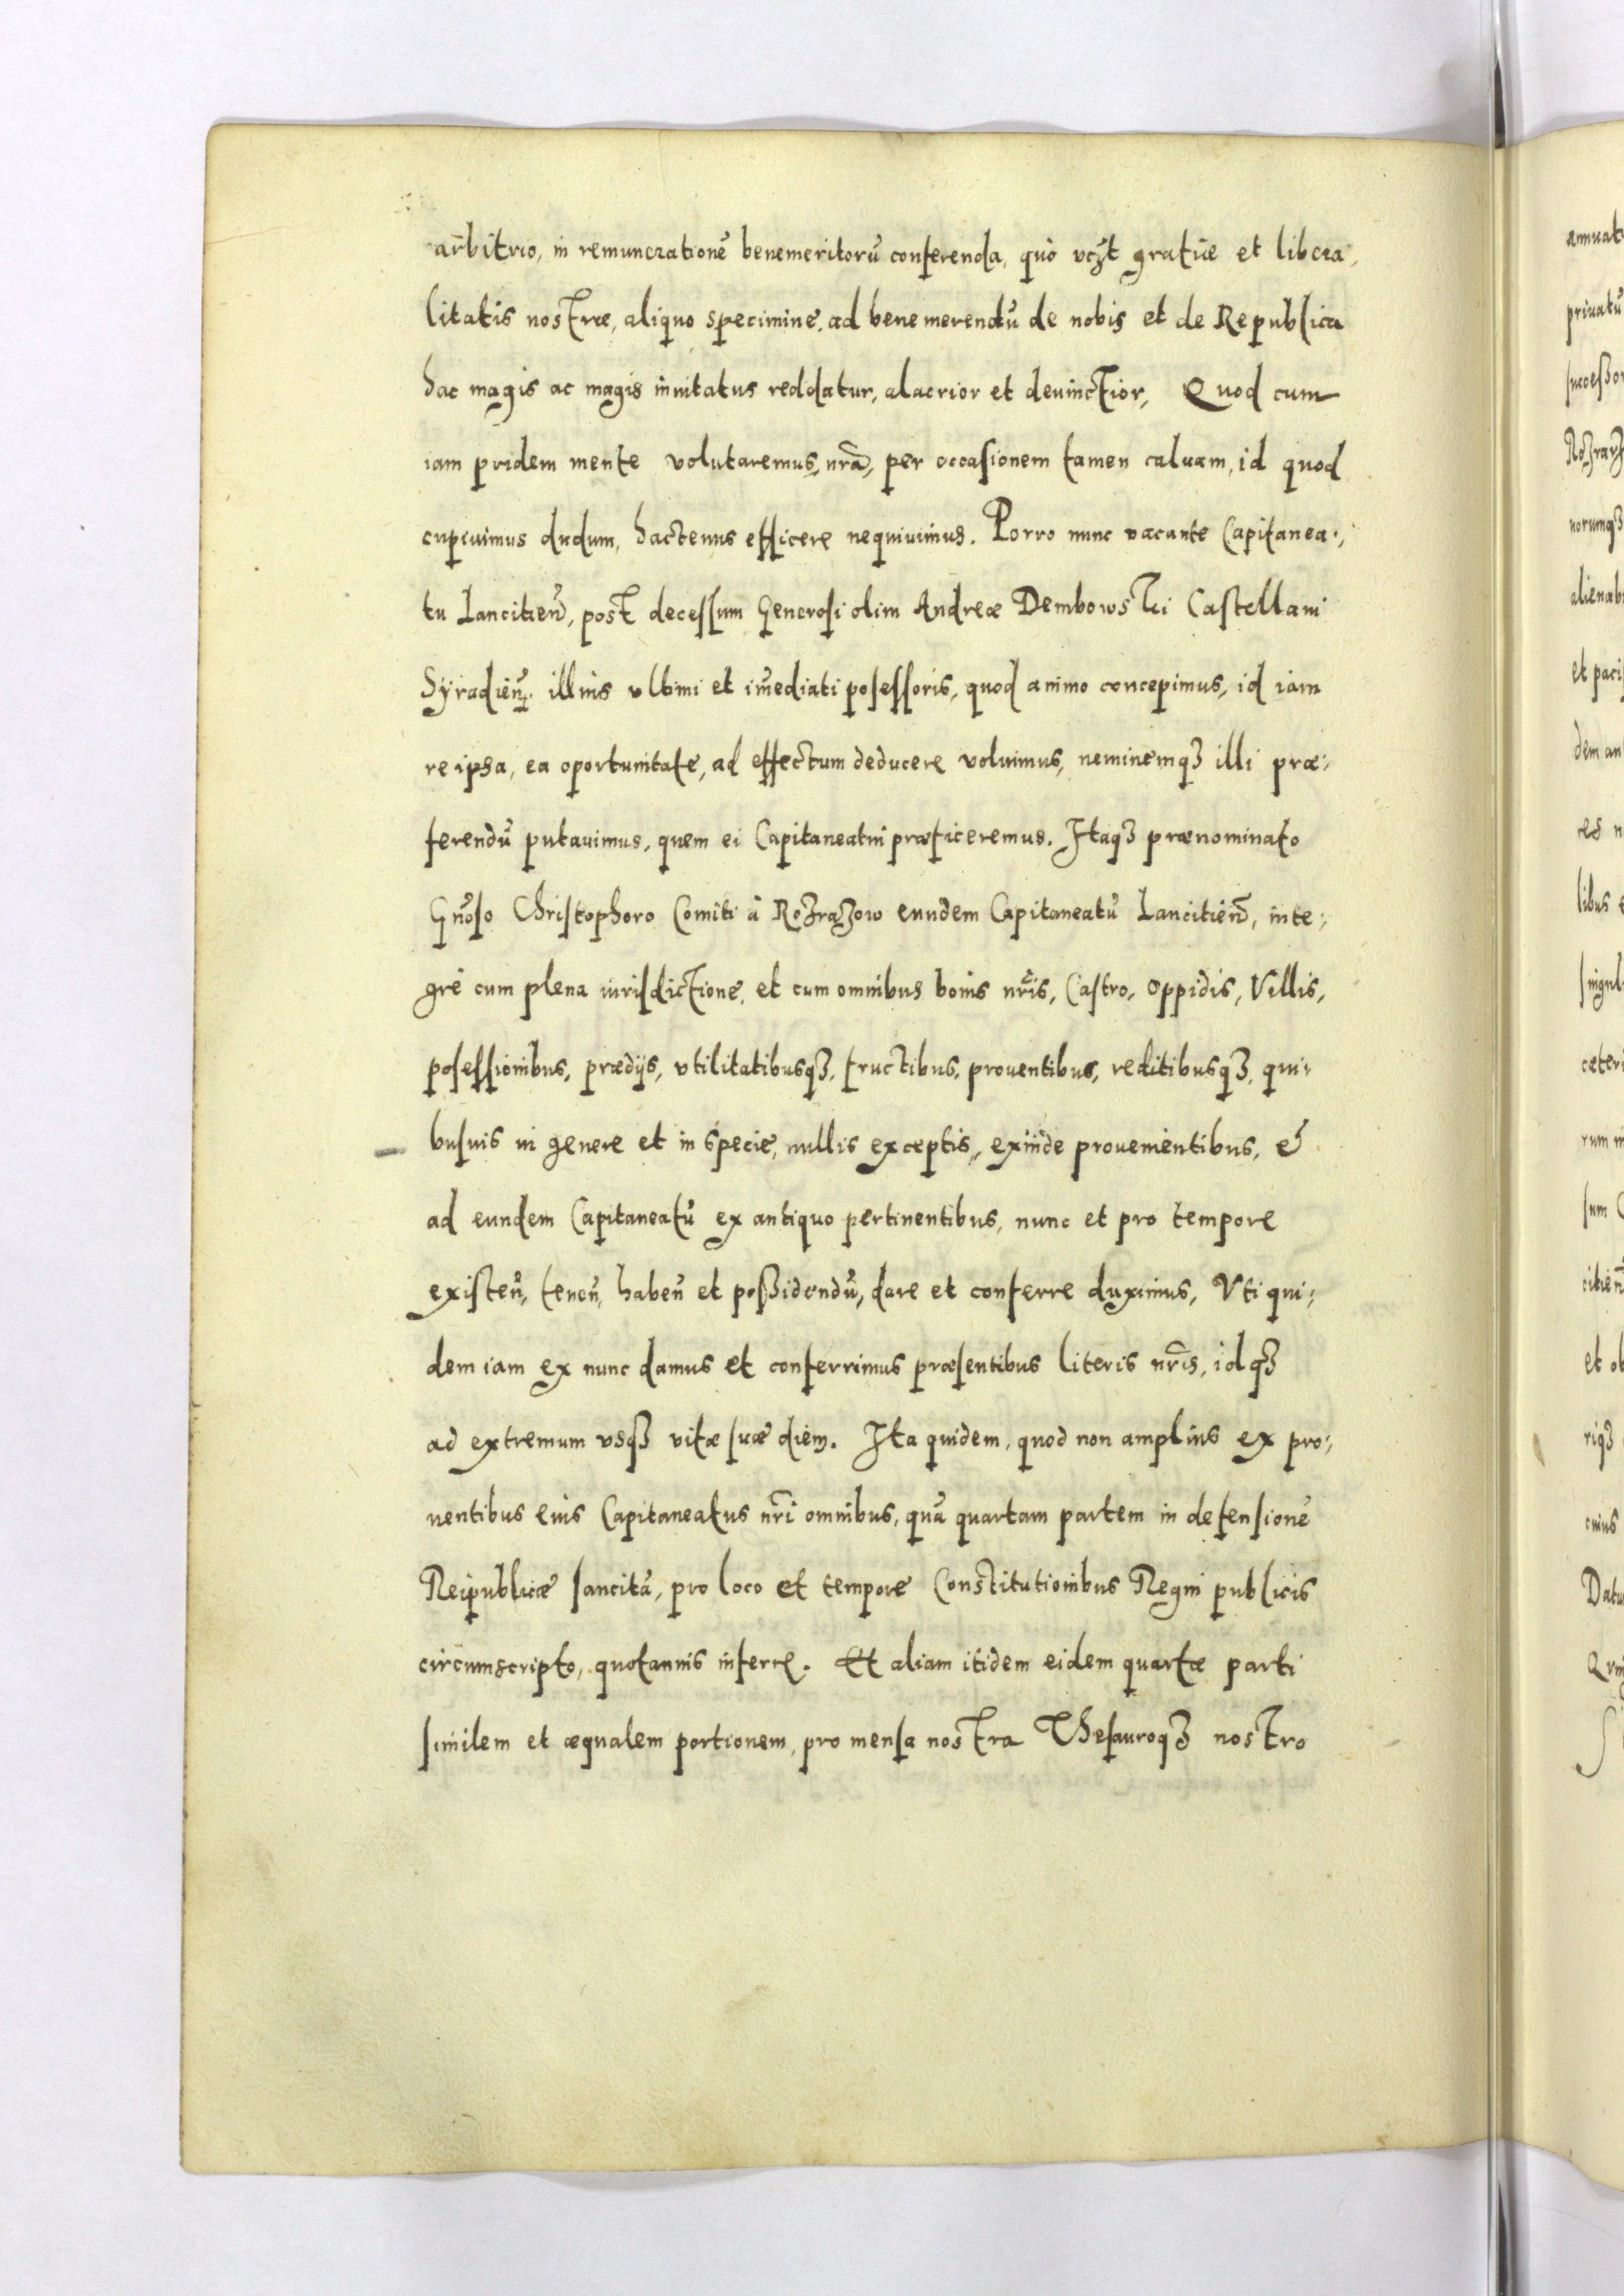 arbitrio, in remunerationē benemeritorū conferenda, quò vczt gratiæ et libera,
litatis nostræ, aliquo specimine, ad bene merendū de nobis et de Republica
hac magis ac magis inuitatus reddatur, alacrior et deuinctior, Quod cum
iam pridem mente volutaremus nr̄a, per occasionem tamen caluam, id quod
cupiuimus dudum, hactenus efficere nequiuimus. Porro nunc vacante Capitanea:,
tu Lancitień, post decessum Generosi olim Andreæ Dembowski Castellani
Syradień. illius vltimi et im̄ediati posessoris, quod animo concepimus, id iam
re ipsa, ea oportunitate, ad effectum deducere voluimus, neminemqȝ illi præ:,
ferendū putauimus, quem ei Capitaneatui præficeremus. Itaqȝ prænominato
Gnōso Christophoro Comiti à Rozrazow eundem Capitaneatū Lancitień, inte:,
grè cum plena iurisdictione, et cum omnibus bonis nr̄is, Castro, Oppidis, Villis,
posessionibus, prædijs, vtilitatibusqȝ, fructibus, prouentibus, reditibusqȝ, qui:,
busuis in genere et in specie, nullis exceptis, exinde prouenientibus, &
ad eundem Capitaneatū ex antiquo pertinentibus, nunc et pro tempore
existeń, teneń, habeń et poßidendū, dare et conferre duximus, Vti qui:,
dem iam ex nunc damus et conferrimus præsentibus literis nr̄is, idqȝ
ad extremum vsqȝ vitæ suæ diem. Ita quidem, quod non amplius ex pro:,
uentibus eius Capitaneatus nr̄i omnibus, quā quartam partem in defensionē
Reipublicæ sancitā, pro loco et tempore Constitutionibus Regni publicis
circumscripto, quotannis inferre. Et aliam itidem eidem quartæ parti
similem et æqualem portionem, pro mensa nostra Thesauroqȝ nostro